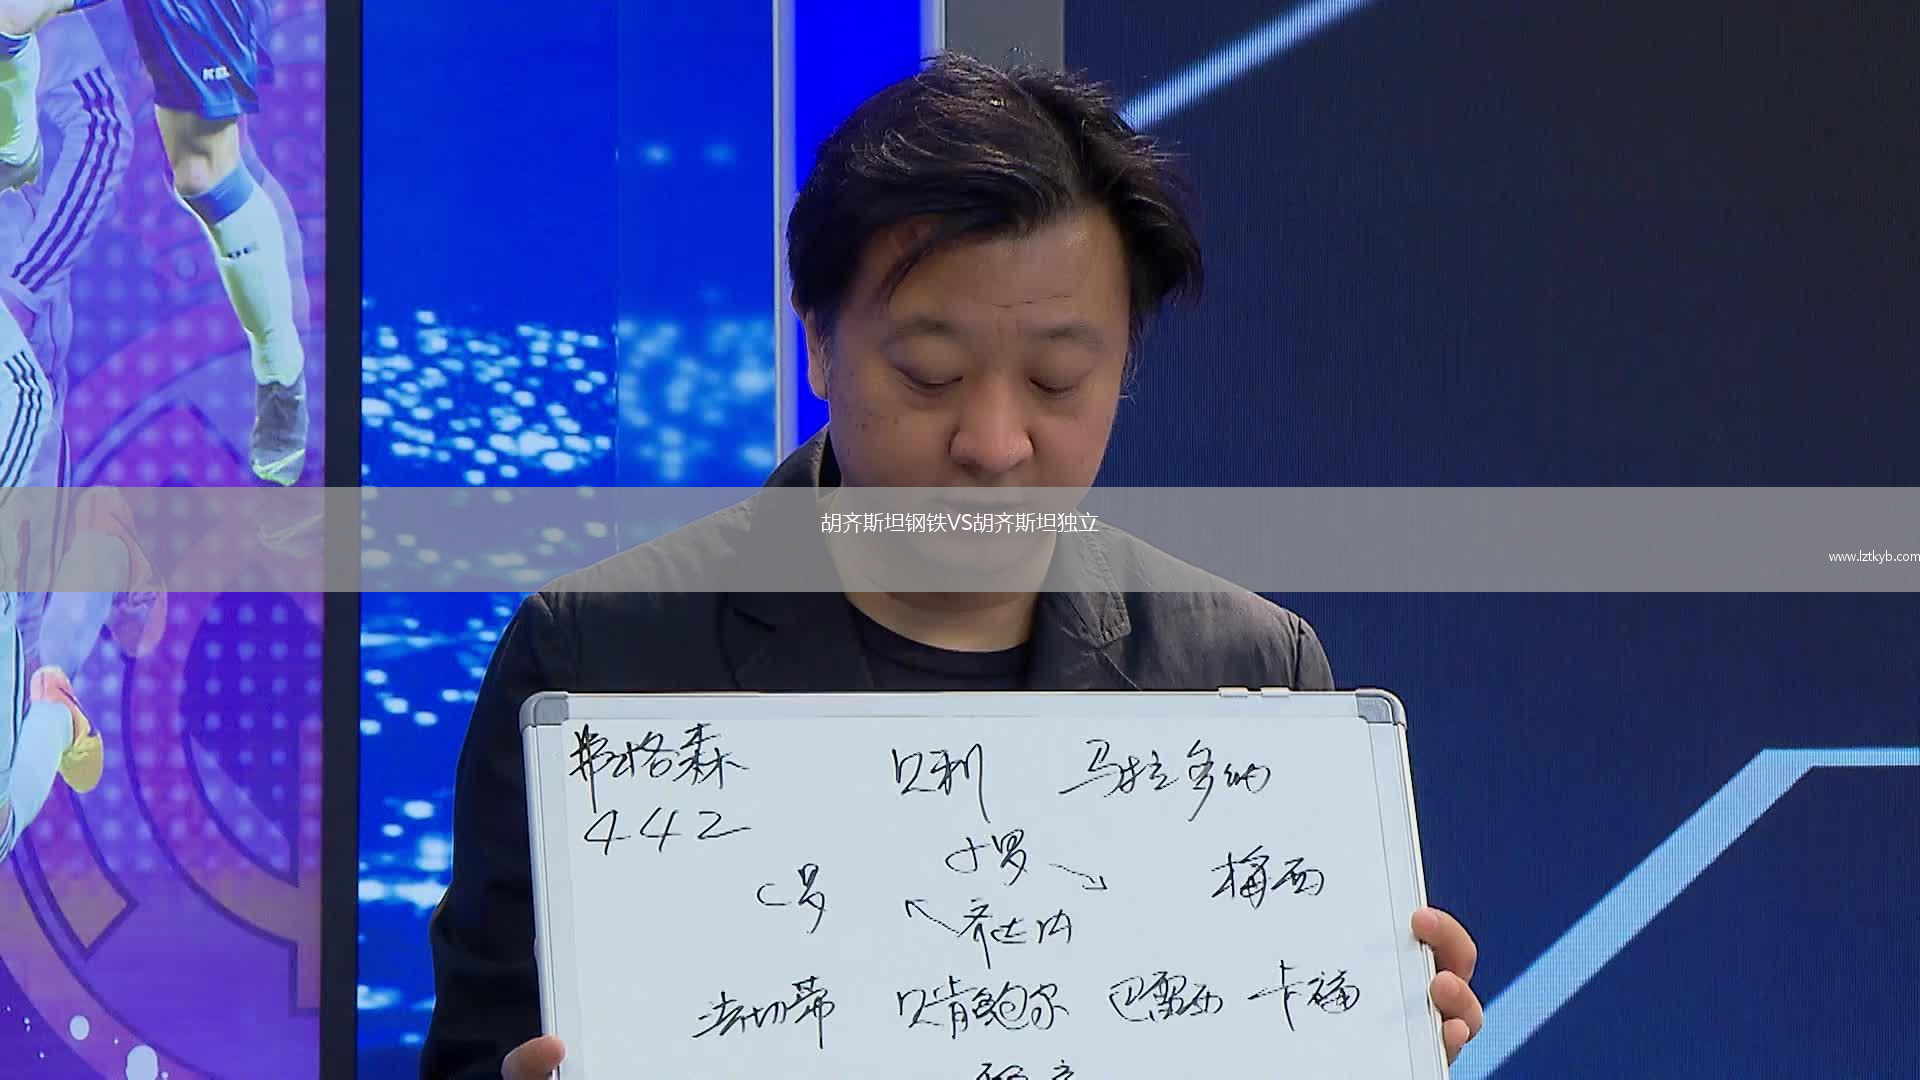 KQ
胡齐斯坦钢铁VS胡齐斯坦独立
www.lztkyb.com
弗格森 贝利 马拉多纳
442
C罗 小罗 梅西
齐达内
法切蒂 贝肯鲍尔 巴雷西 卡福